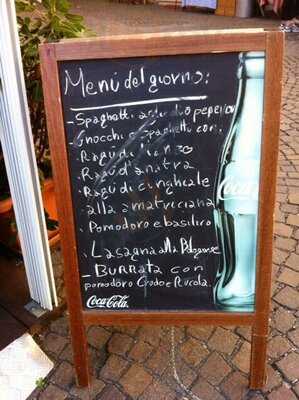 Menù del giorno:
- Spaghetti aglio olio peperon
Gnocchi o Spaghetti con:
· Ragù di
· Ragù d'anitra
· Ragù di cinghiale
· alla amatriciana
· Pomodoro e basilico
· Lasagna alla
- BURRATA con
pomodoro Crudo e Rucola.
Coca-Cola
Coca-Cola